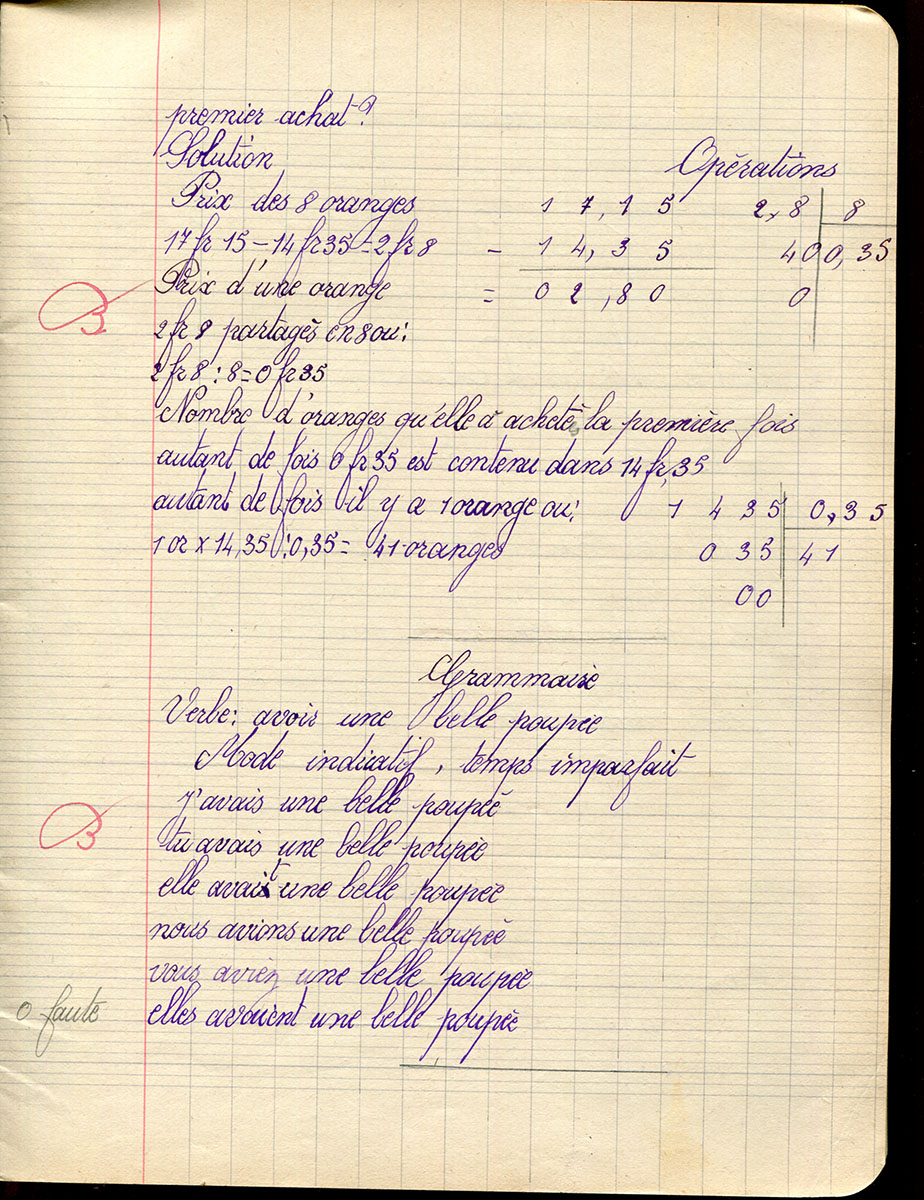 premier achat?
Solution
Opérations
Prix des 8 oranges
17 fr 15 - 14 fr 35 = 2 fr 8
Prix d'une orange
2 fr 8 partagés en 8 ou:
2 fr 8 : 8 = 0 fr 35
1 7,1 5
- 1 4,3 5
= 0 2,8 0
2,8 8
40 0,35
0
B
Nombre d'oranges qu'elle a acheté la première fois
autant de fois 0 fr 35 est contenu dans 14 fr,35
autant de fois il y a 1 orange ou:
1 or x 14,35 : 0,35 = 41 oranges
1 4 3 5 0,35
0 3 5 41
0 0
Grammaire
Verbe: avoir une belle poupée
Mode indicatif, temps imparfait
j'avais une belle poupée
B
tu avais une belle poupée
elle avait une belle poupée
nous avions une belle poupée
vous aviez une belle poupée
0 faute
elles avaient une belle poupée